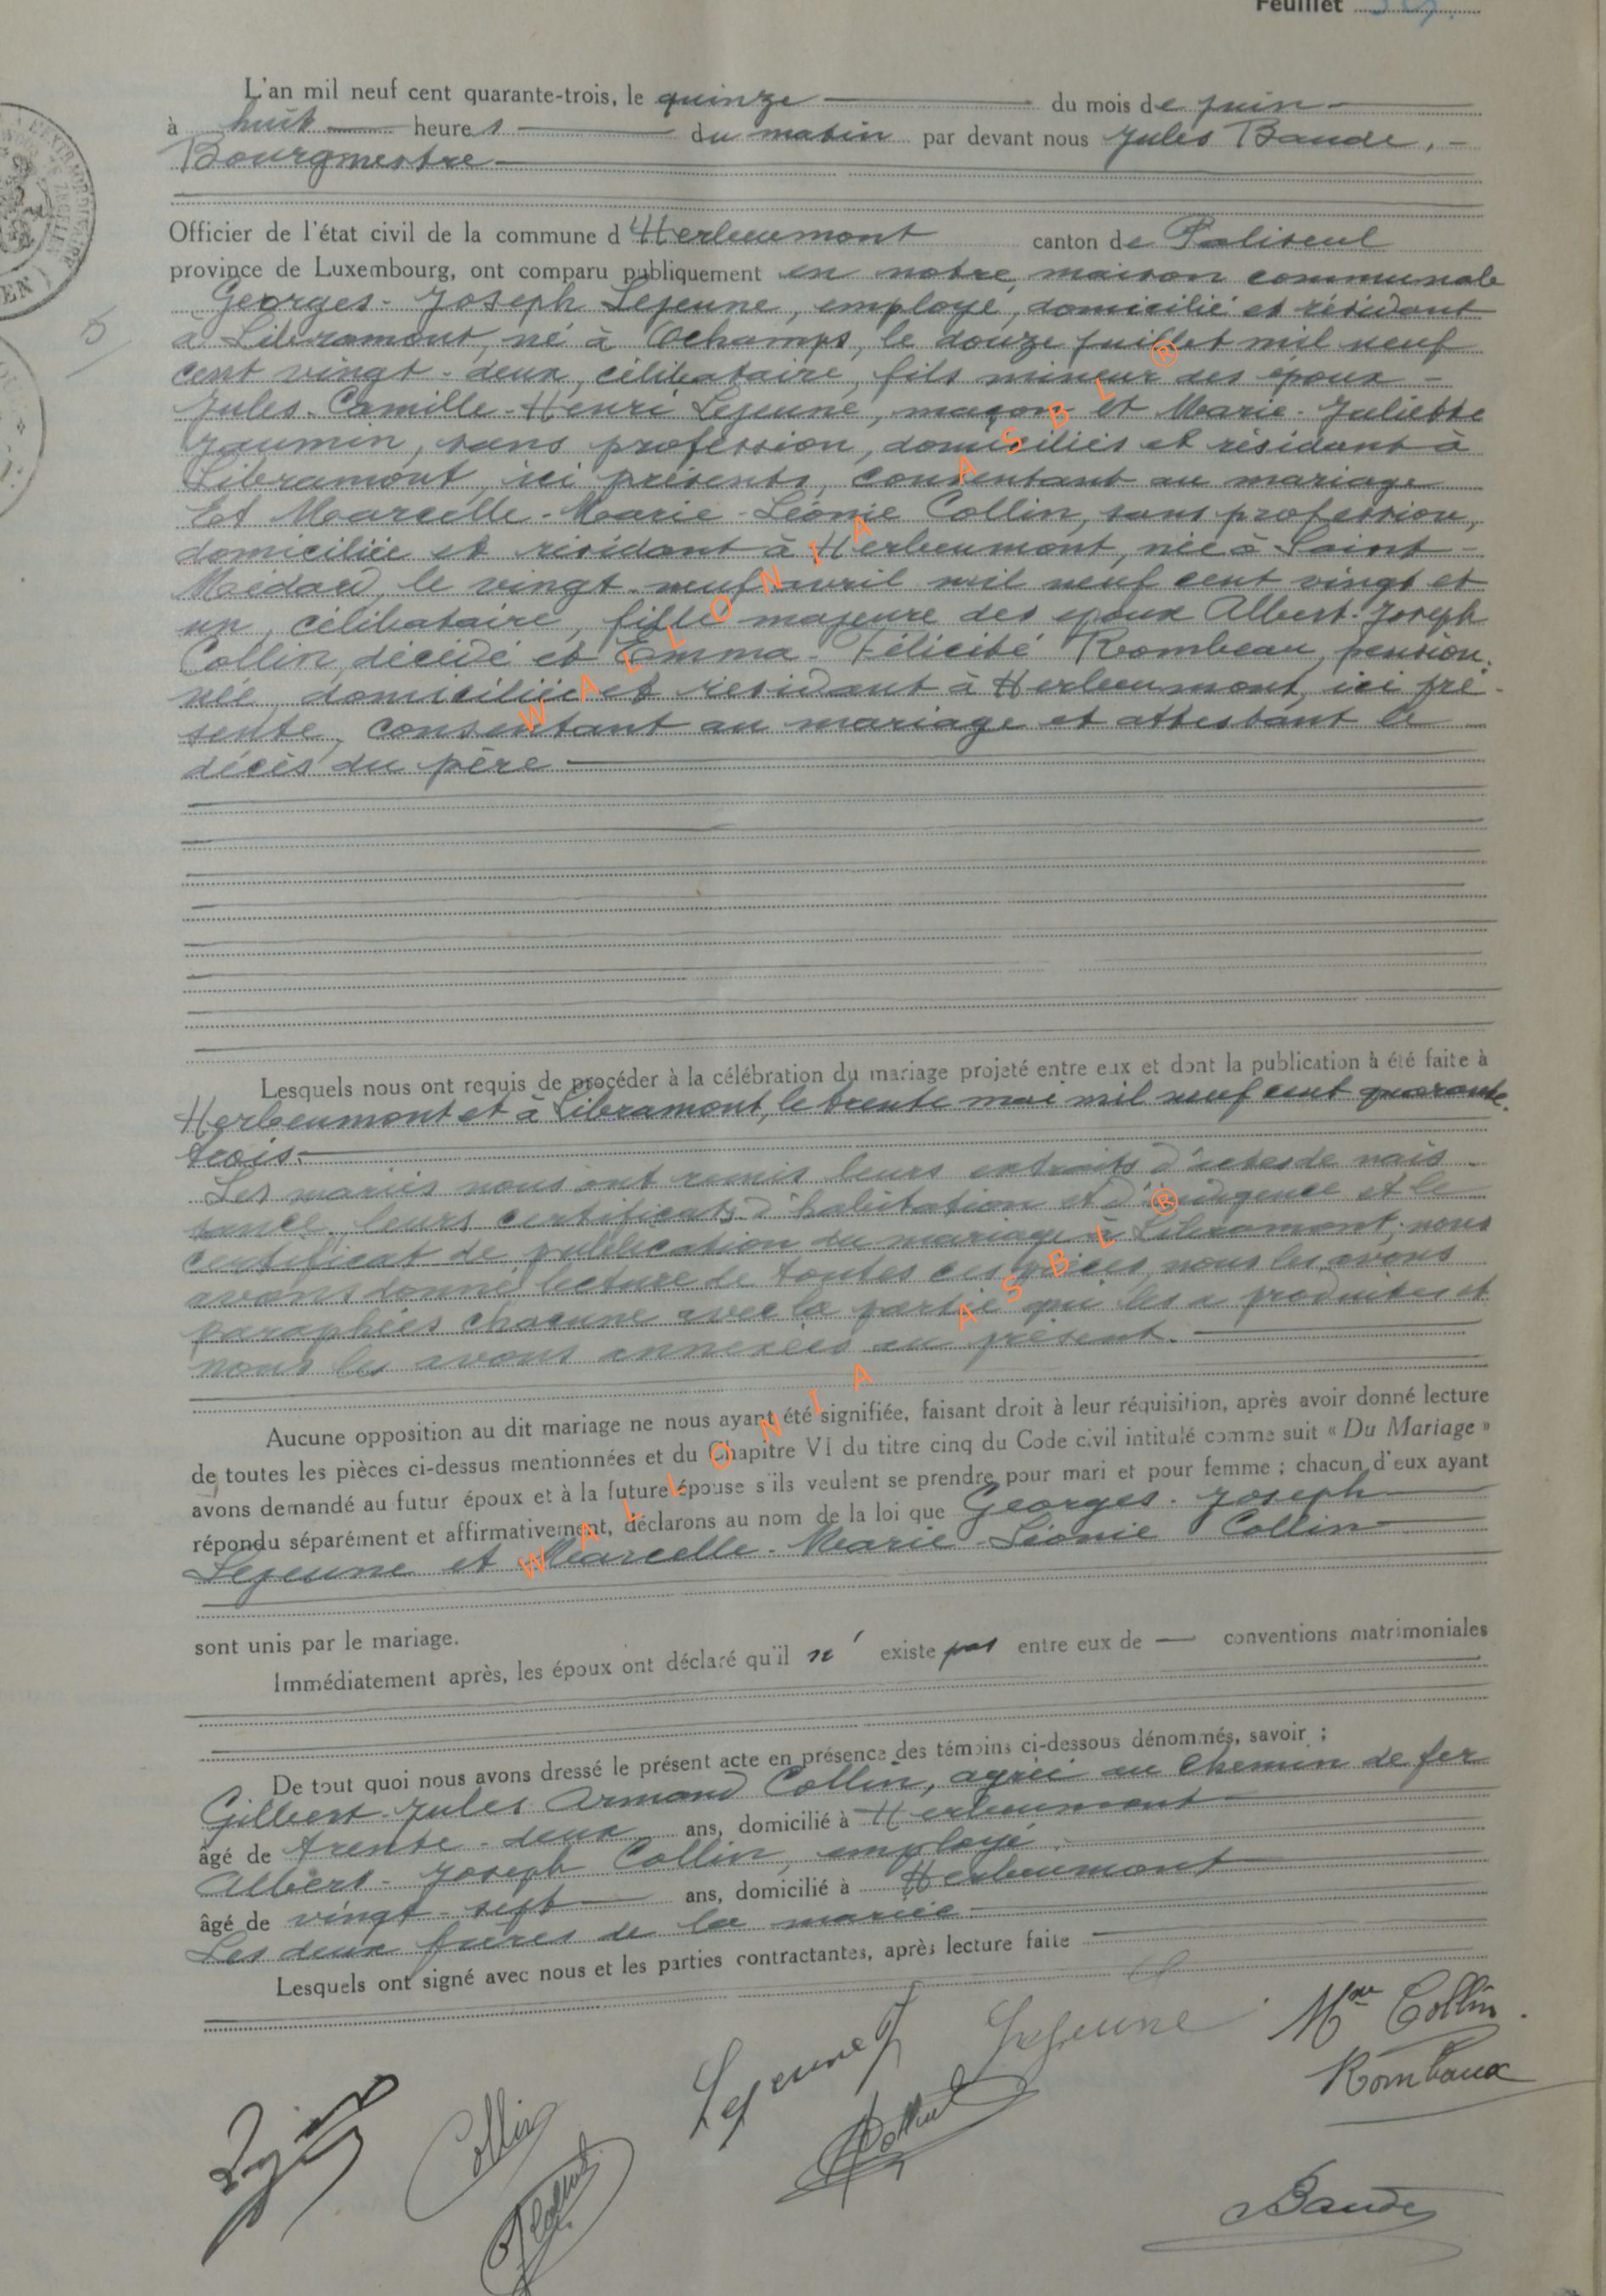 Feuillet
L'an mil neuf cent quarante-trois, le quinze du mois de juin
à huit heures du matin par devant nous Jules Baude,
Bourgmestre
Officier de l'état civil de la commune d'Herbeumont canton de Paliseul
province de Luxembourg, ont comparu publiquement en notre maison communale
Georges-Joseph Lejeune, employé, domicilié et résidant
à Libramont, né à Ochamps, le douze juillet mil neuf
cent vingt-deux, célibataire, fils mineur des époux
Jules-Camille-Henri Lejeune, maçon et Marie-Juliette
Jaumin, sans profession, domiciliés et résidant à
Libramont, ici présents, consentant au mariage
Et Marcelle-Marie-Léonie Collin, sans profession,
domiciliée et résidant à Herbeumont, née à Saint-
Médard, le vingt-neuf avril mil neuf cent vingt et
un, célibataire, fille majeure des époux Albert-Joseph
Collin, décédé et Emma-Félicité Rombeau, pension-
née, domiciliée et résidant à Herbeumont, ici pré-
sente, consentant au mariage et attestant le
décès du père
Lesquels nous ont requis de procéder à la célébration du mariage projeté entre eux et dont la publication à été faite à
Herbeumont et à Libramont, le trente mai mil neuf cent quarante-
trois.
Les mariés nous ont remis leurs extraits d'actes de nais-
sance, leurs certificats d'habitation et d'indigence et le
certificat de publication du mariage à Libramont; nous
avons donné lecture de toutes ces pièces, nous les avons
paraphées chacune avec la partie qui les a produites et
nous les avons annexées au présent.
Aucune opposition au dit mariage ne nous ayant été signifiée, faisant droit à leur réquisition, après avoir donné lecture
de toutes les pièces ci-dessus mentionnées et du Chapitre VI du titre cinq du Code civil intitulé comme suit « Du Mariage »
avons demandé au futur époux et à la future épouse s'ils veulent se prendre pour mari et pour femme ; chacun d'eux ayant
répondu séparément et affirmativement, déclarons au nom de la loi que Georges-Joseph
Lejeune et Marcelle-Marie-Léonie Collin
sont unis par le mariage.
Immédiatement après, les époux ont déclaré qu'il n' existe pas entre eux de — conventions matrimoniales
De tout quoi nous avons dressé le présent acte en présence des témoins ci-dessous dénommés, savoir ;
Gilbert-Jules Armand Collin, agréé au chemin de fer
âgé de trente-deux ans, domicilié à Herbeumont
Albert-Joseph Collin, employé
âgé de vingt-sept ans, domicilié à Herbeumont
Les deux frères de la mariée
Lesquels ont signé avec nous et les parties contractantes, après lecture faite
Lejeune J Lejeune Mme Collin
Rombaux
Collin
Baude
WALLONIA ASBL ®
WALLONIA ASBL ®